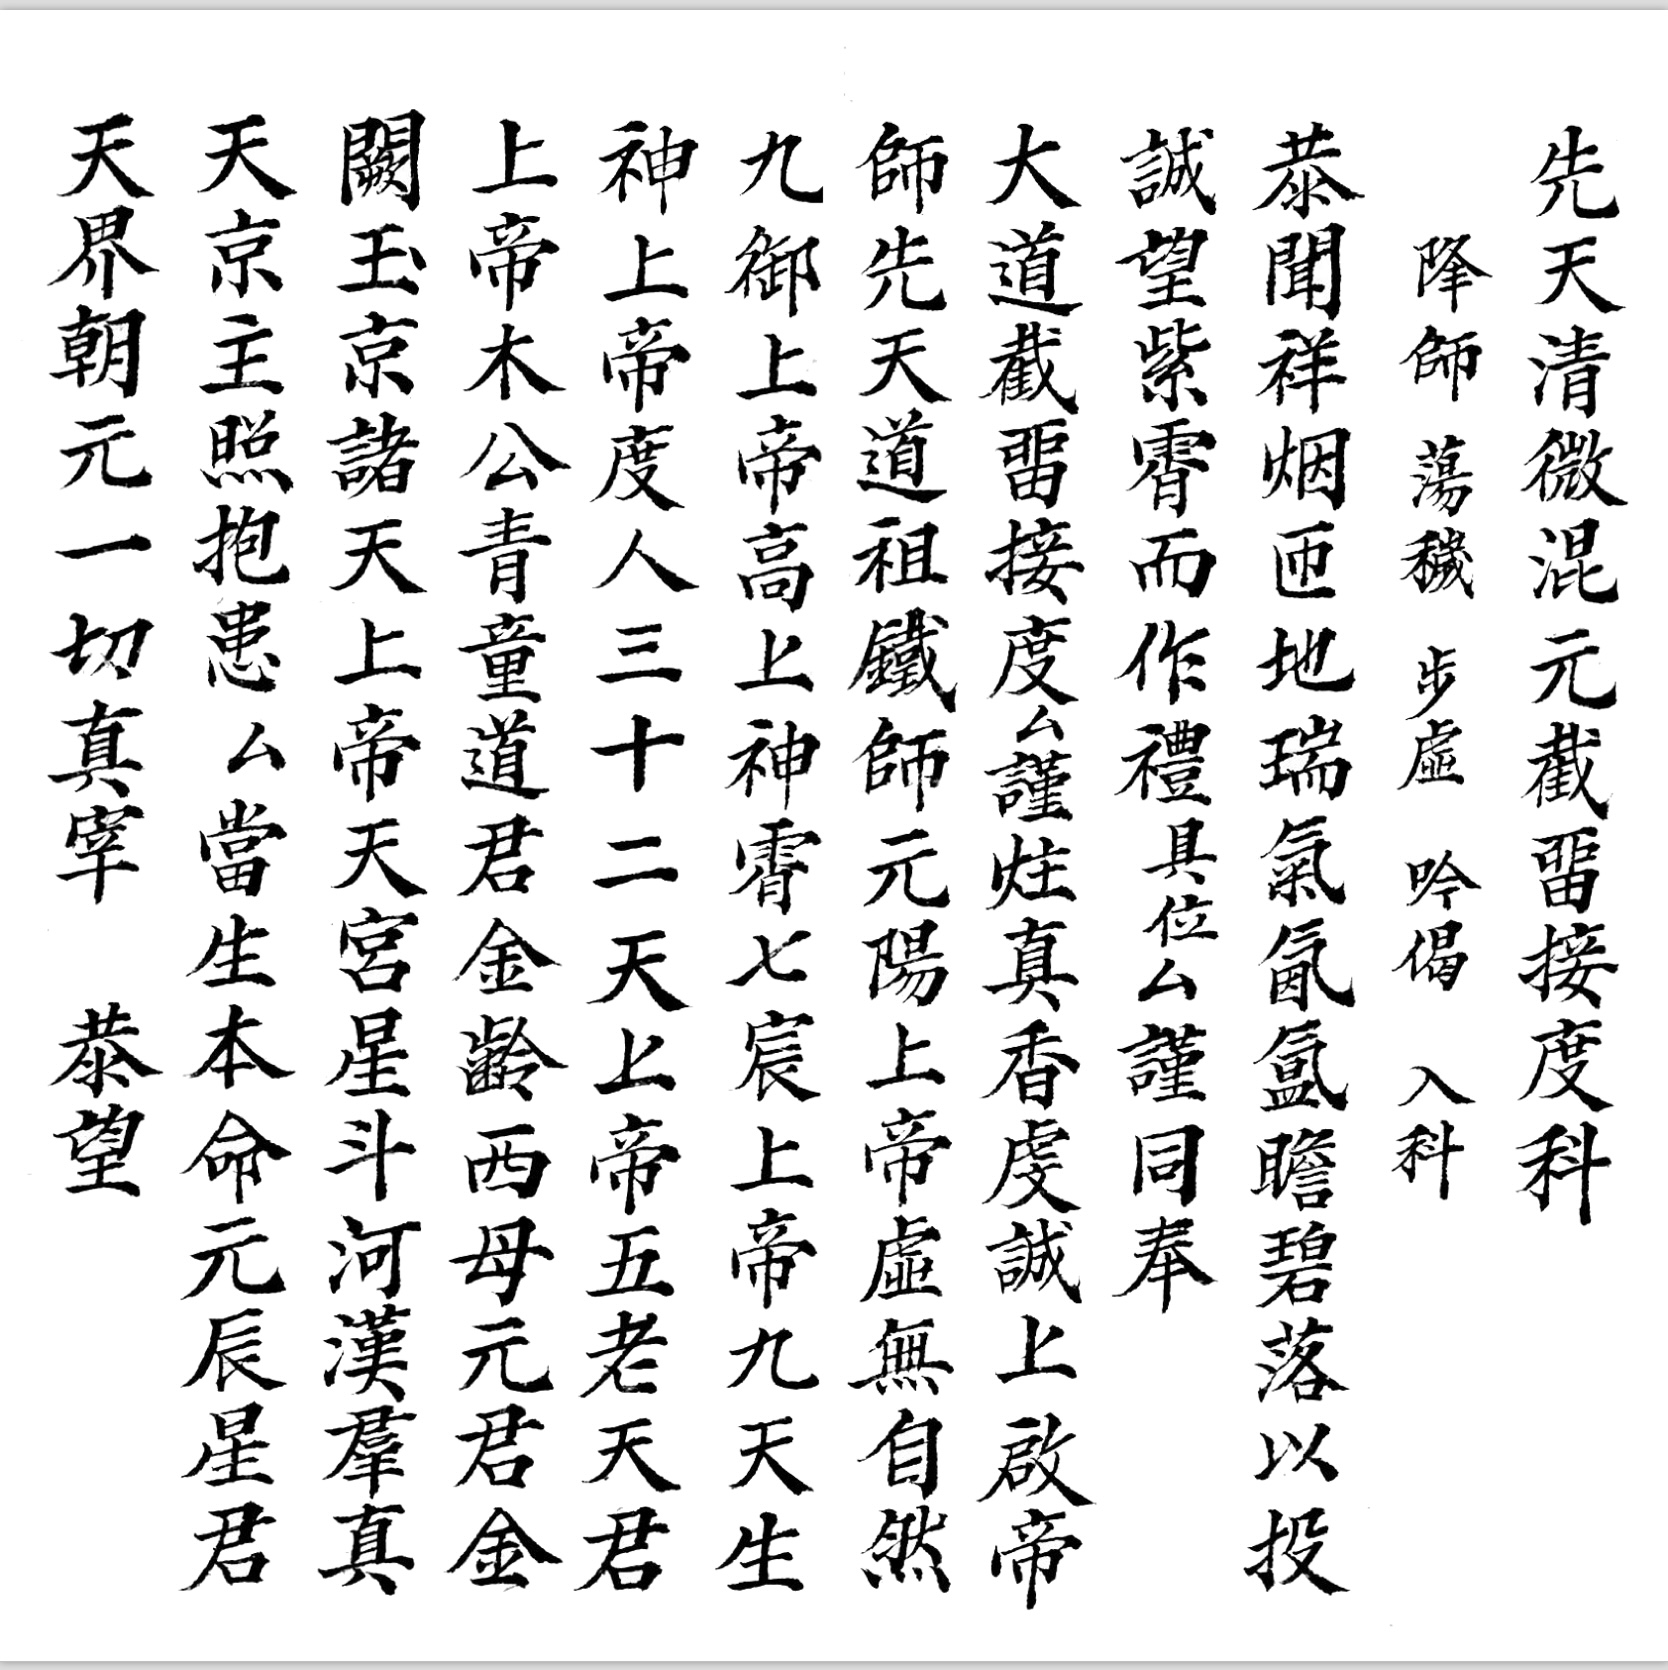 先天清微混元截畱接度科
降師　蕩穢　步虛　吟偈　入科
恭聞祥烟匝地瑞氣氤氳瞻碧落以投
誠望紫霄而作禮具位厶謹同奉
大道截畱接度厶謹炷真香虔誠上啟帝
師先天道祖鐵師元陽上帝虛無自然
九御上帝高上神霄七宸上帝九天生
神上帝度人三十二天上帝五老天君
上帝木公青童道君金齡西母元君金
闕玉京諸天上帝天宮星斗河漢羣真
天京主照抱患厶當生本命元辰星君
天界朝元一切真宰　恭望